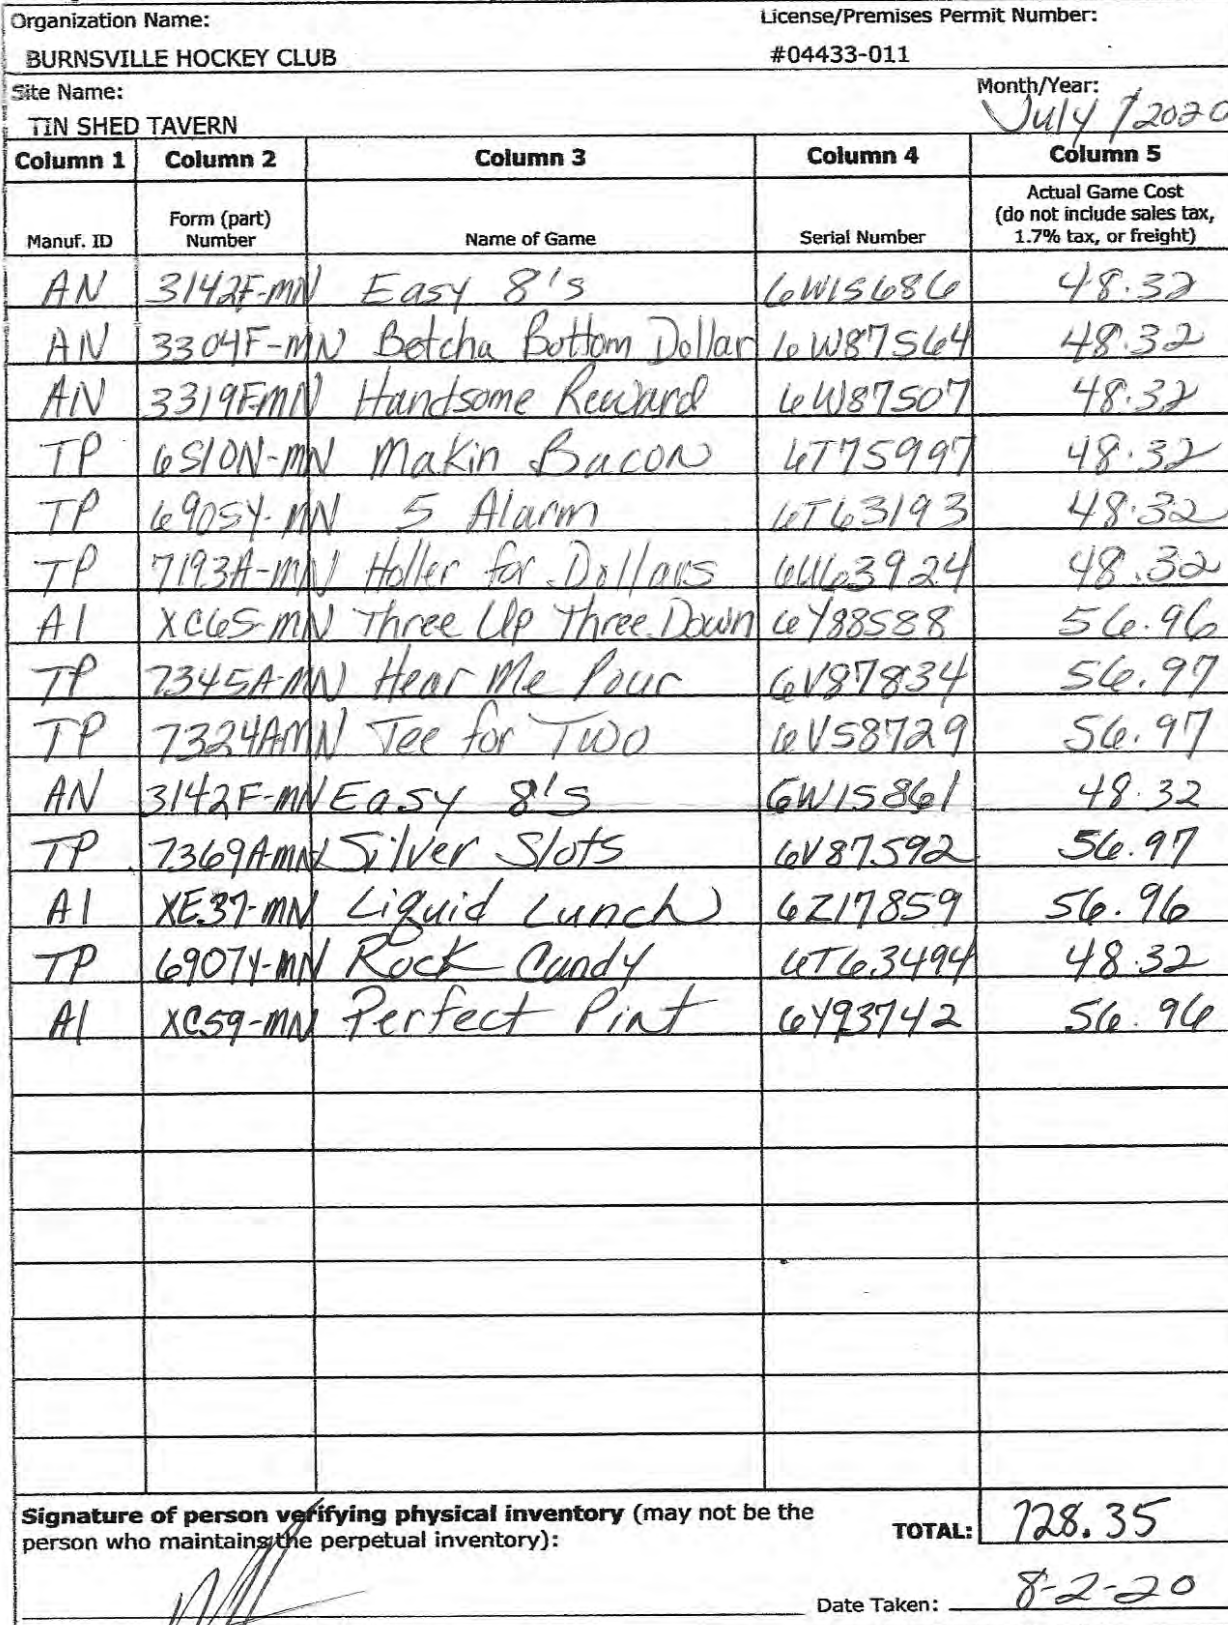 Organization Name: License/Premises Permit Number:
BURNSVILLE HOCKEY CLUB #04433-011
Site Name: Month/Year:
TIN SHED TAVERN July /2020
Column 1 Column 2 Column 3 Column 4 Column 5
Manuf. ID Form (part) Number Name of Game Serial Number Actual Game Cost (do not include sales tax, 1.7% tax, or freight)
AN 3142F-MN Easy 8's 6W15686 48.32
AN 3304F-MN Betcha Bottom Dollar 6W87564 48.32
AN 3319F-MN Handsome Reward 6W87507 48.32
TP 6510N-MN Makin Bacon 6T75997 48.32
TP 6905Y-MN 5 Alarm 6T63193 48.32
TP 7193A-MN Holler for Dollars 6U63924 48.32
AI XC65-MN Three Up Three Down 6Y88588 56.96
TP 7345A-MN Hear Me Pour 6V87834 56.97
TP 7324AMN Tee for Two 6V58729 56.97
AN 3142F-MN Easy 8's 6W15861 48.32
TP 7369A-MN Silver Slots 6V87592 56.97
AI XE37-MN Liquid Lunch 6Z17859 56.96
TP 6907Y-MN Rock Candy 6T63494 48.32
AI XC59-MN Perfect Pint 6Y93742 56.96
Signature of person verifying physical inventory (may not be the
person who maintains the perpetual inventory): TOTAL: 728.35
Date Taken: 8-2-20